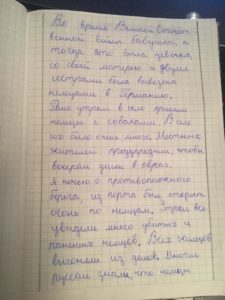 Во время Великой Отечест-
венной войны бабушка, а
тогда это была девочка,
со своей матерью и двумя
сестрами была вывезена
немцами в Германию.
Рано утром в село пришли
немцы с собаками. В селе
их было очень много. Местных
жителей предупредили, чтобы
вечером ушли в овраг.
А ночью с противоположного
берега, из порта был открыт
огонь по немцам. Утром все
увидели много убитых и
раненых немцев. Всех жителей
выгнали из домов. Многие
знали, что немцы